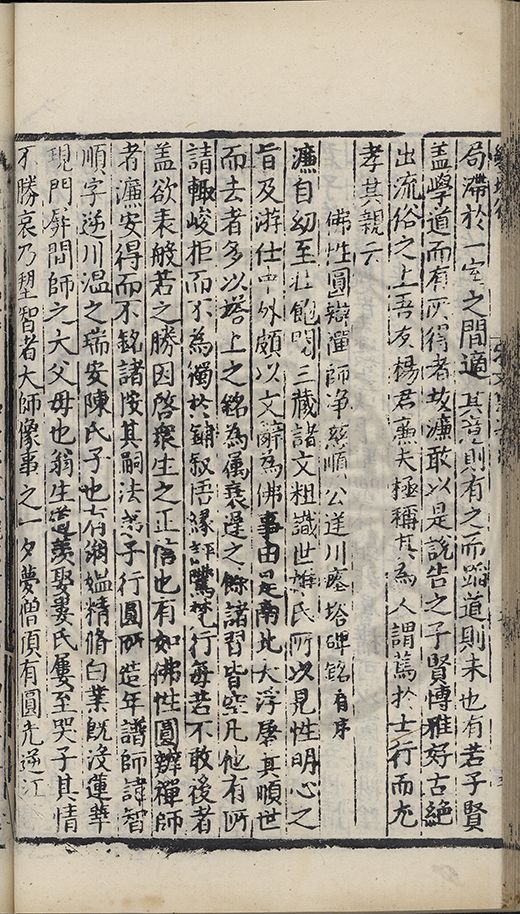 局滯於一室之間適其意則有之而蹈道則未也有若子賢
蓋學道而有所得者故濂敢以是說告之子賢博雅好古絕
出流俗之上吾友楊君廉夫極稱其為人謂篤於士行而尤
孝其親云
佛性圓辯禪師淨慈順公逆川瘞塔碑銘有序
濂自幼至壯飽閱三藏諸文粗識世雄氏所以見性明心之
旨及游仕中外頗以文辭為佛事由是南北大浮屠其順世
而去者多以塔上之銘為屬衰遲之餘諸習皆空凡他有所
請輒峻拒而不為獨於鋪敘悟緣評隲梵行每若不敢後者
蓋欲表般若之勝因啓衆生之正信也有如佛性圓辯禪師
者濂安得而不銘諸按其嗣法弟子行圓所造年譜師諱智
順字逆川溫之瑞安陳氏子也有翁媼精脩白業既沒蓮華
現門屏間師之大父母也翁生道羨娶婁氏屢至哭子其情
不勝哀乃塑智者大師像事之一夕夢僧頂有圓光逆江